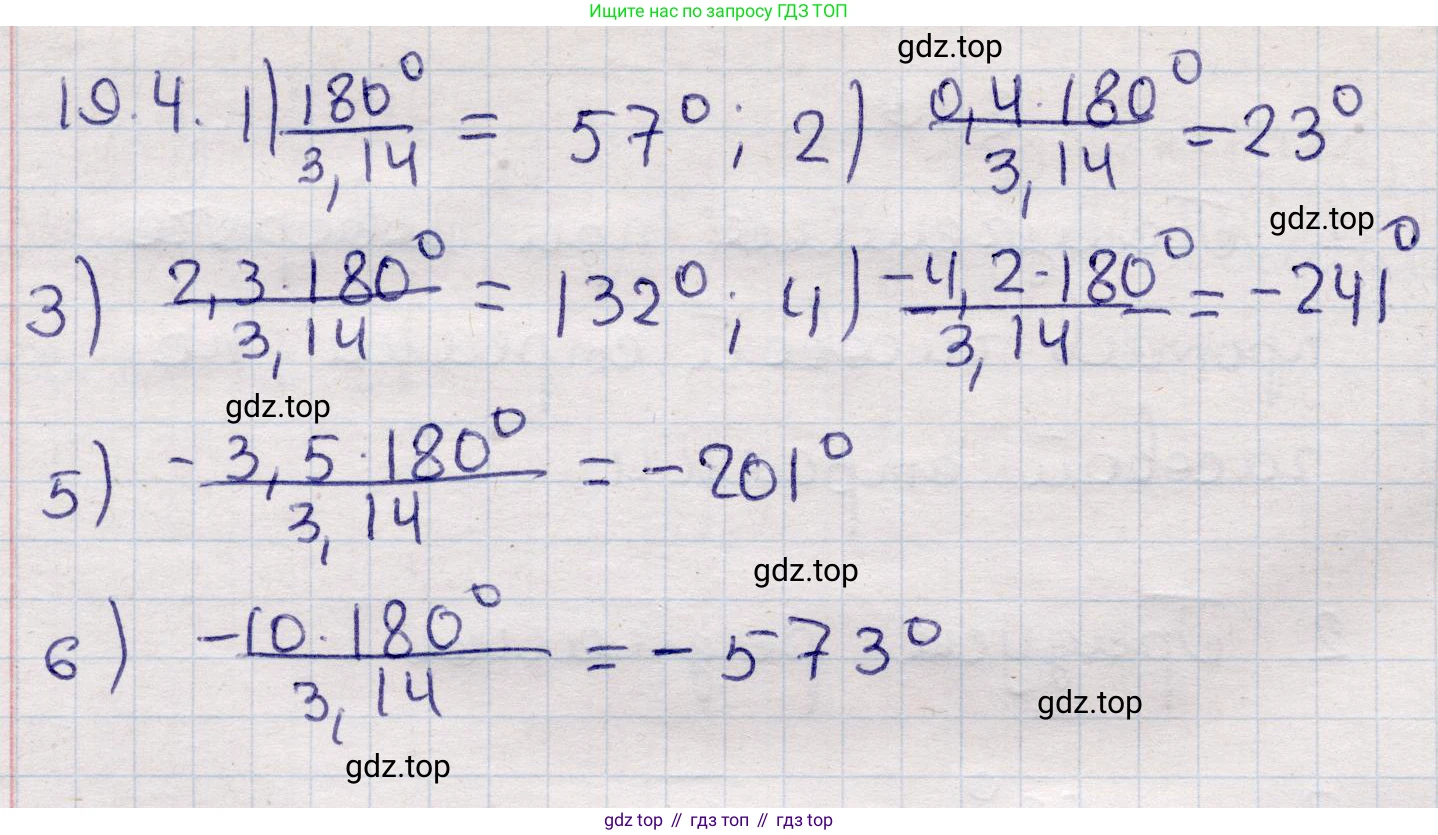 Ищите нас по запросу ГДЗ ТОП
gdz.top
19.4. 1) 180°/3,14 = 57°; 2) 0,4·180°/3,14 = 23°
gdz.top
3) 2,3·180°/3,14 = 132°; 4) -4,2·180°/3,14 = -241°
gdz.top
5) -3,5·180°/3,14 = -201°
gdz.top
6) -10·180°/3,14 = -573°
gdz.top
gdz.top
gdz top // гдз топ // гдз top